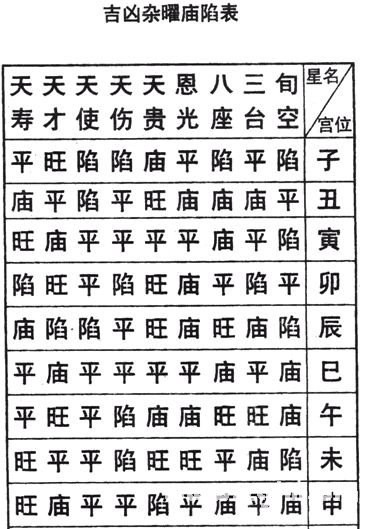 吉凶杂曜庙陷表
天 天 天 天 天 恩 八 三 旬 星名
寿 才 使 伤 贵 光 座 台 空 宫位
平 旺 陷 陷 庙 平 陷 平 陷 子
庙 平 陷 平 旺 庙 庙 庙 平 丑
旺 庙 平 平 平 平 庙 平 陷 寅
陷 旺 平 陷 旺 庙 平 陷 平 卯
庙 陷 陷 平 旺 庙 旺 庙 陷 辰
平 庙 平 平 平 平 庙 平 庙 巳
平 旺 平 陷 庙 庙 旺 旺 庙 午
旺 平 平 陷 旺 旺 平 庙 陷 未
旺 庙 平 平 陷 平 庙 平 庙 申